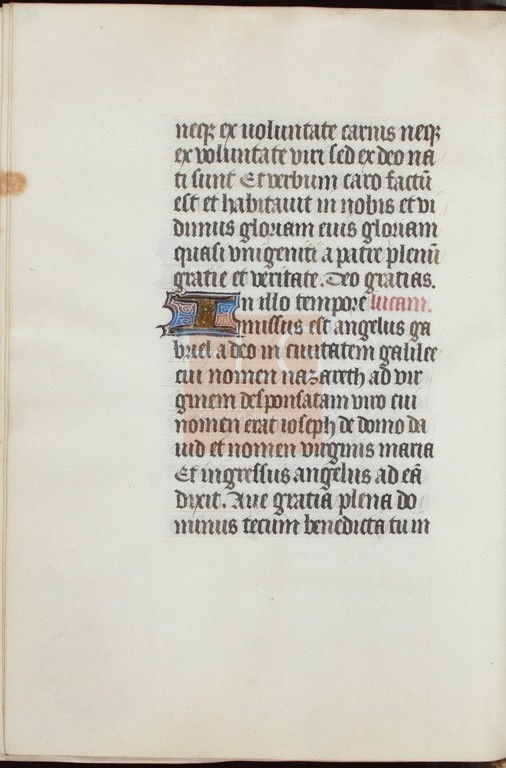 neqꝫ ex uoluntate carnis neqꝫ
ex voluntate viri sed ex deo na
ti sunt Et verbum caro factū
est et habitauit in nobis et vi
dimus gloriam eius gloriam
quasi vnigeniti a patre plenū
gratie et veritate. Deo gratias.
In illo tempore lucam.
missus est angelus ga
briel a deo in ciuitatem galilee
cui nomen nazareth ad vir
ginem desponsatam viro cui
nomen erat ioseph de domo da
uid et nomen virginis maria
Et ingressus angelus ad eā
dixit. Aue gratia plena do
minus tecum benedicta tu in